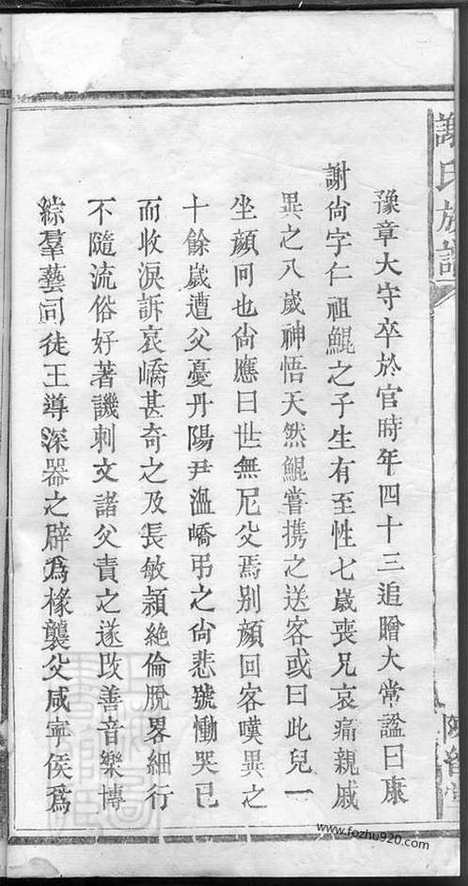 謝氏族譜
豫章大守卒於官時年四十三追贈大常謚曰康
謝尙字仁祖鯤之子生有至性七歲喪兄哀痛親戚
異之八歲神悟天然鯤嘗携之送客或曰此兒一
坐顏回也尙應曰世無尼父焉別顏回客嘆異之
十餘歲遭父憂丹陽尹溫嶠弔之尙悲號慟哭已
而收淚訴哀嶠甚奇之及長敏頴絶倫脫畧細行
不隨流俗好著譏刺文諸父責之遂攺善音樂博
綜羣藝司徒王導深器之辟爲椽襲父咸寧侯爲
www.fozhu920.com